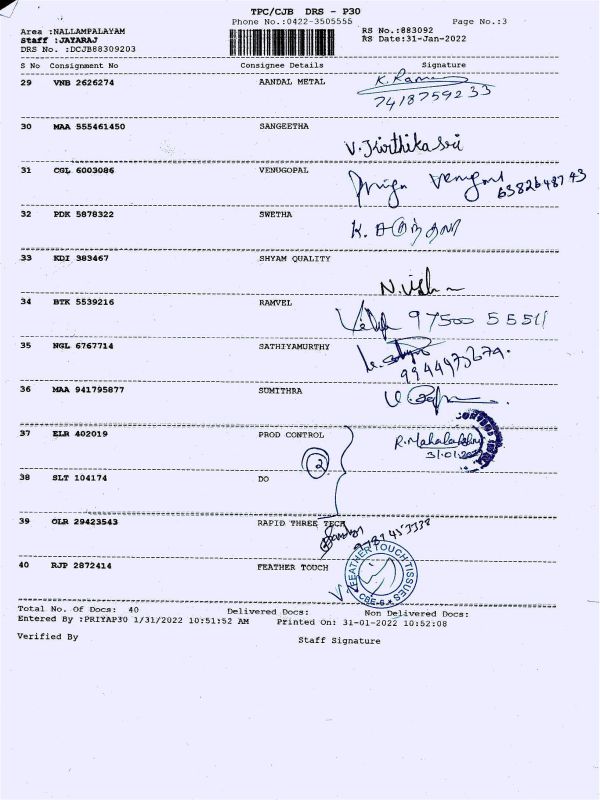 TPC/CJB DRS - P30
Phone No.:0422-3505555 Page No.:3
Area :NALLAMPALAYAM RS No.:883092
Staff :JAYARAJ RS Date:31-Jan-2022
DRS No. :DCJB88309203
S No Consignment No Consignee Details Signature
29 VNB 2626274 AANDAL METAL K. Raman
7418759233
30 MAA 555461450 SANGEETHA
V. Jivithika Sri
31 CGL 6003086 VENUGOPAL
Venugopal 6382648743
32 PDK 5878322 SWETHA
K.
33 KDI 383467 SHYAM QUALITY
N.
34 BTK 5539216 RAMVEL
97500 55511
35 NGL 6767714 SATHIYAMURTHY
9944973679.
36 MAA 941795877 SUMITHRA
37 ELR 402019 PROD CONTROL R. Mahalakshmi
2 31/01/2022
38 SLT 104174 DO
39 OLR 29423543 RAPID THREE TECH
40 RJP 2872414 FEATHER TOUCH
FEATHER TOUCH TISSUES
CBE-6
Total No. Of Docs: 40 Delivered Docs: Non Delivered Docs:
Entered By :PRIYAP30 1/31/2022 10:51:52 AM Printed On: 31-01-2022 10:52:08
Verified By Staff Signature